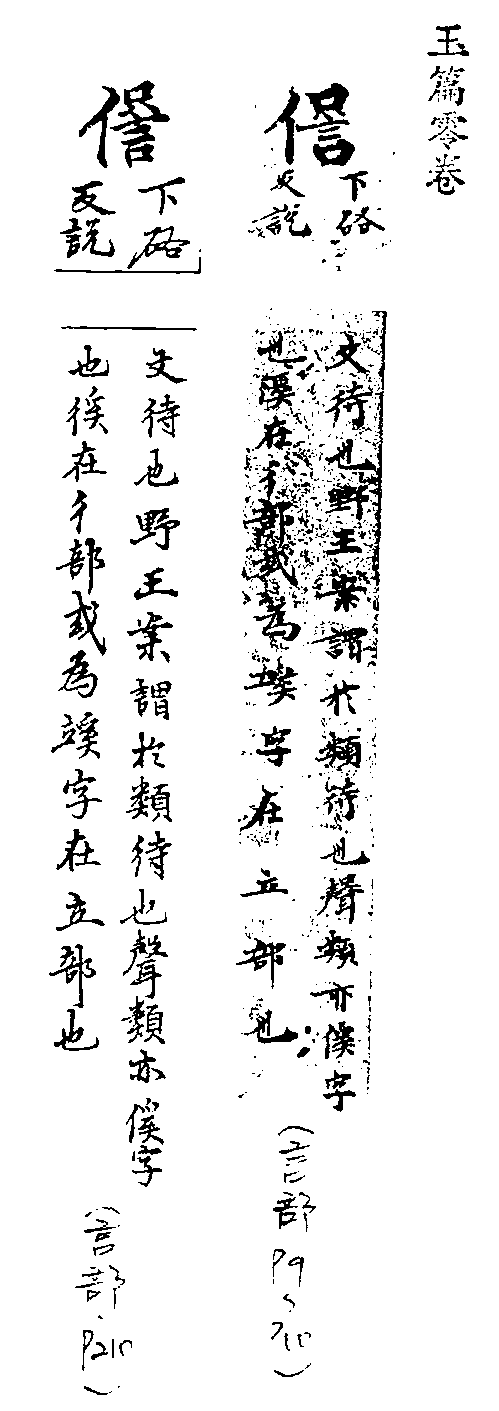 玉篇零卷
䜁
下硌
反說
文待也野王案謂於類待也聲類亦傒字
也徯在彳部或為字在立部也
(言部 P9〜10)
䜁
下硌
反說
文待也野王案謂於類待也聲類亦傒字
也徯在彳部或為字在立部也
(言部、P210)